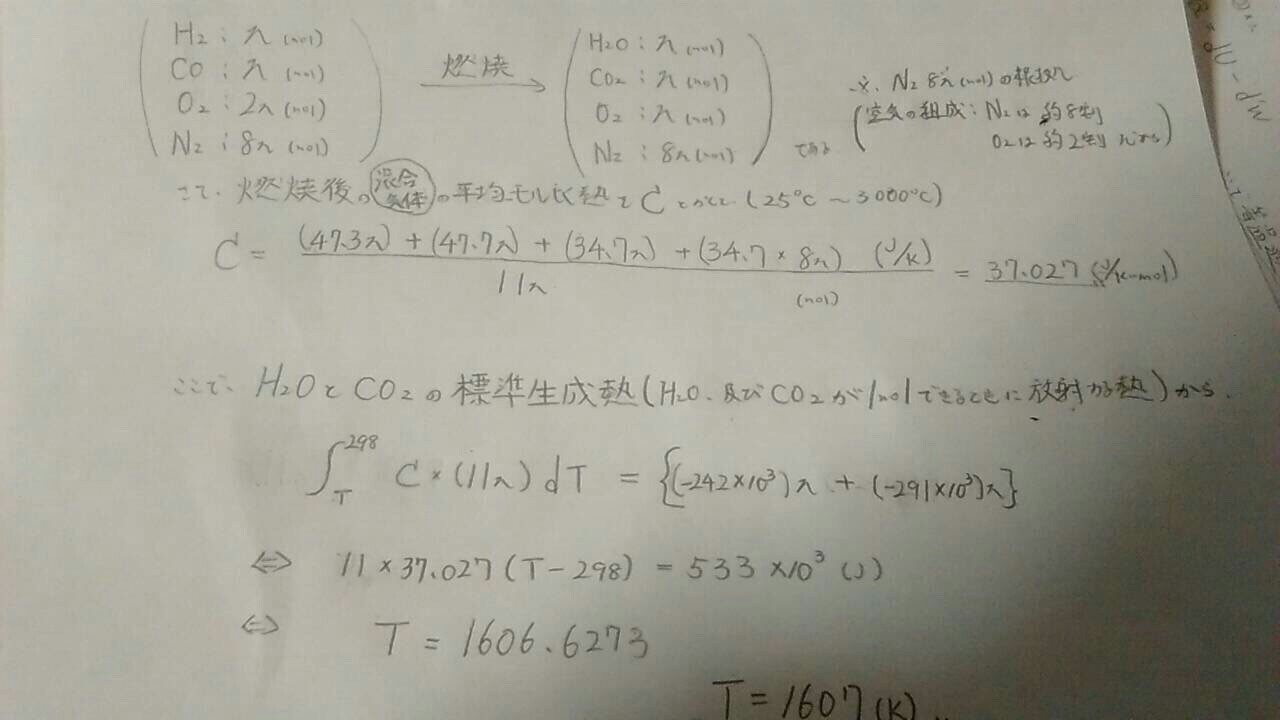 H2 : n (mol)
CO : n (mol)
O2 : 2n (mol)
N2 : 8n (mol)
燃焼
H2O : n (mol)
CO2 : n (mol)
O2 : n (mol)
N2 : 8n (mol)
である
※. N2 8n (mol) の根拠は
(空気の組成 : N2は 約8割
O2は 約2割 だから)
さて、燃焼後の混合気体の平均モル比熱をCとかくと、(25℃ ~ 3000℃)
C = (47.3n) + (47.7n) + (34.7n) + (34.7 × 8n) (J/K) / 11n (mol) = 37.027 (J/K・mol)
ここで、H2OとCO2の標準生成熱(H2O、及びCO2が1molできるときに放射する熱)から、
∫_T^298 C × (11n) dT = {(-242×10³)n + (-291×10³)n}
⇔ 11 × 37.027 (T - 298) = 533 × 10³ (J)
⇔ T = 1606.6273
T = 1607 (K)
dU - dW